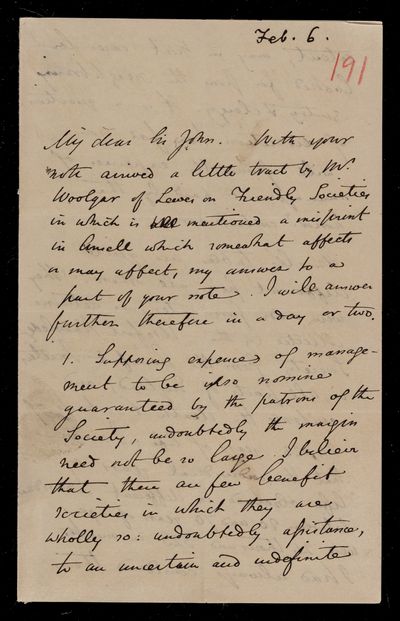 Feb. 6.
191
My dear Sir John. With your
note arrived a little tract by Mr.
Woolgar of Lewes on Friendly Societies
in which is mentioned a misprint
in Ansell which somewhat affects
or may affect, my answer to a
part of your note. I will answer
further therefore in a day or two.
1. Supposing expences of manage-
ment to be ipso nomine
guaranteed by the patrons of the
Society, undoubtedly the margin
need not be so large. I believe
that there are few benefit
societies in which they are
wholly so: undoubtedly assistance,
to an uncertain and indefinite